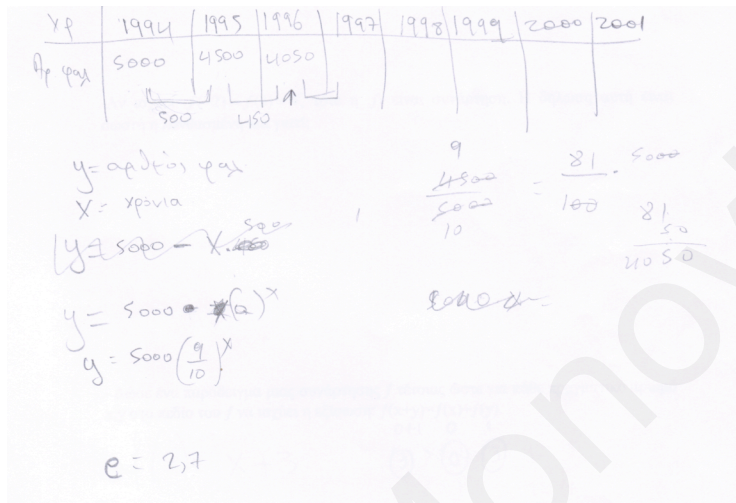 χρ 1994 1995 1996 1997 1998 1999 2000 2001
Αρ φαλ 5000 4500 4050
500 450
y = αριθμός φαλ.
x = χρόνια
y = 5000 - x · 500
y = 5000 · (a)^x
y = 5000 (9/10)^x
9
4500/5000 = 81/100 · 5000
10
81
50
4050
e = 2,7
Monov